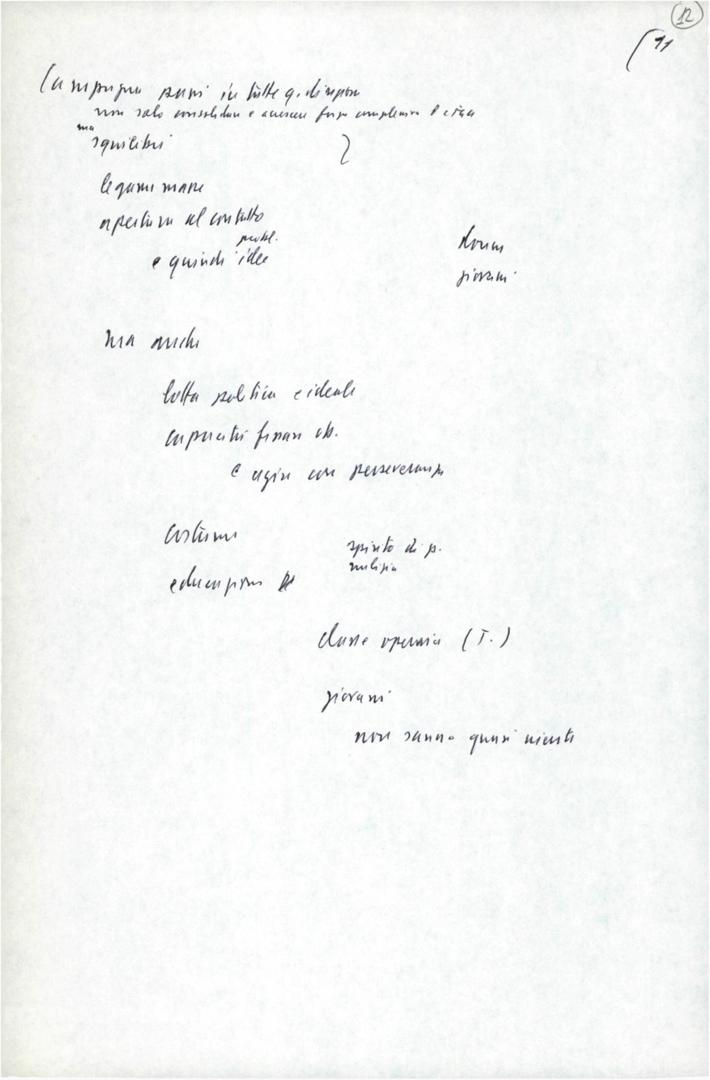 12
11
Campagna in tutte q. dimens
non solo consolidare e accrescere forza complessiva P
ma
squilibri
legami masse
apertura al contatto
probl.
e quindi idee
donne
giovani
ma anche
lotta politica e ideale
capacità
e agire con perseveranza
costume
spirito di p.
milizia
educazione
classe operaia (T.)
giovani
non sanno quasi niente